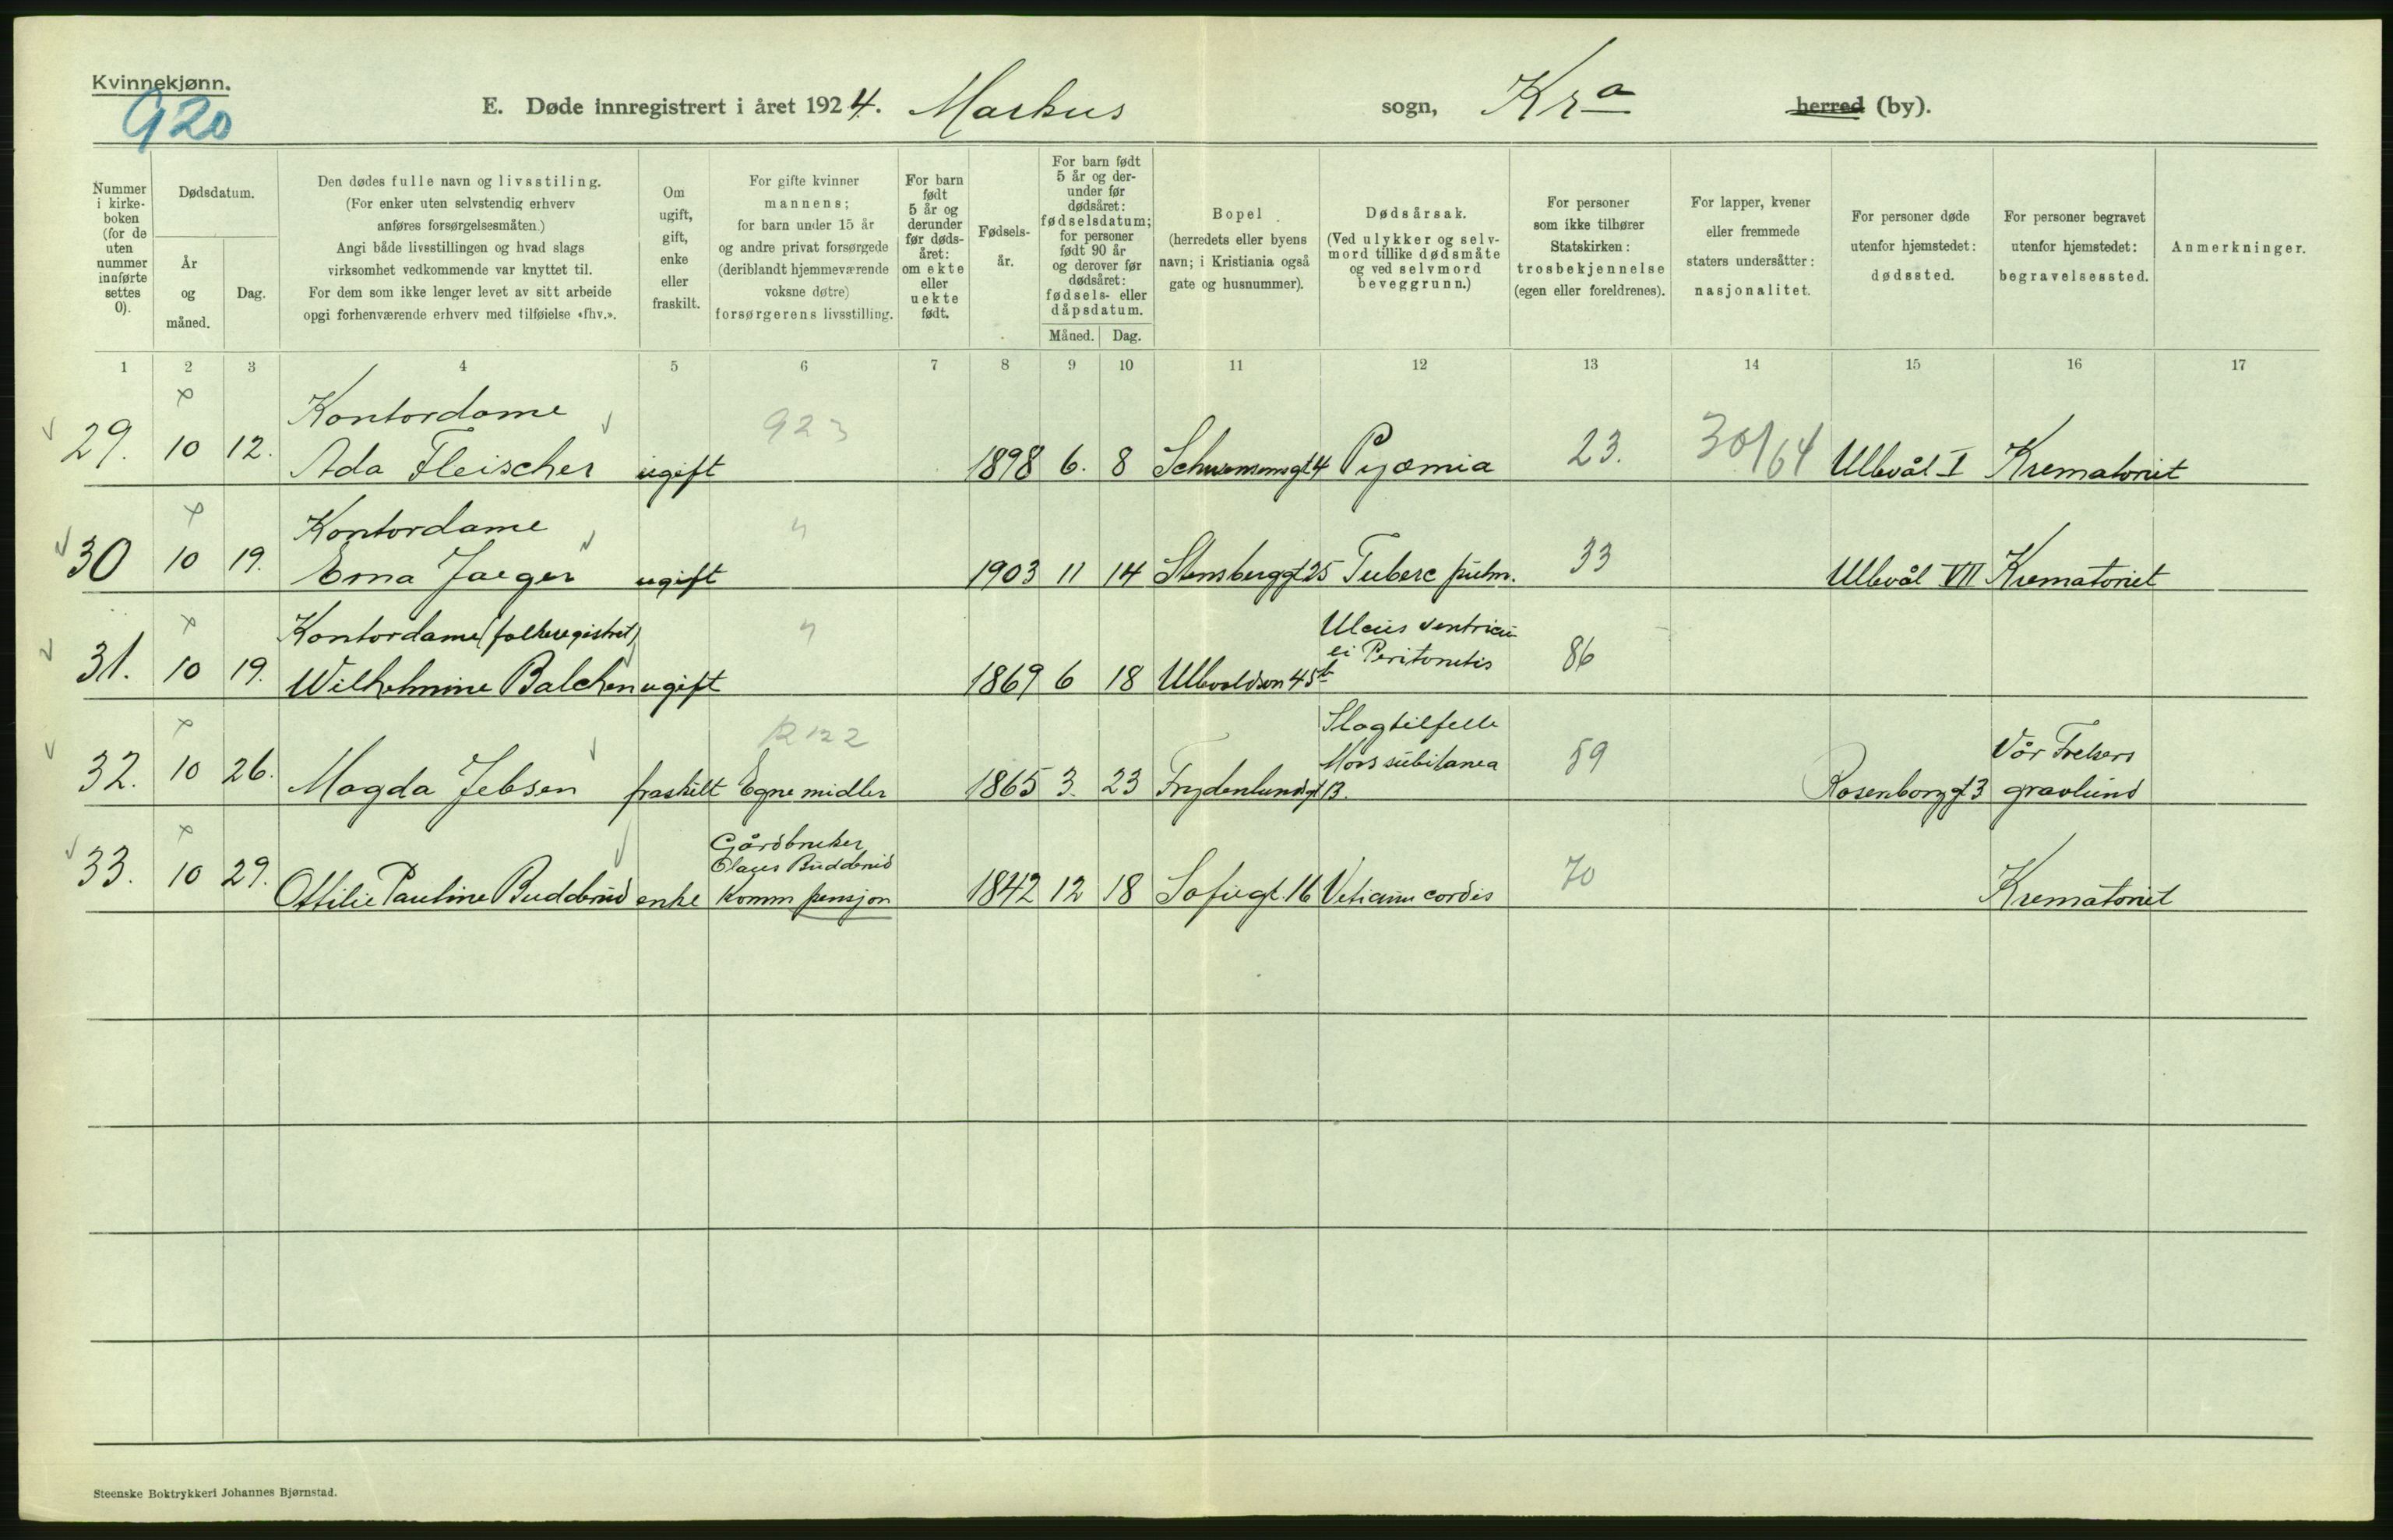 Kvinnekjønn.
920
E. Døde innregistrert i året 1924. Markus sogn, Kra herred (by).
Nummer i kirke-boken (for de uten nummer innførte settes 0).
Dødsdatum.
År og måned.
Dag.
Den dødes fulle navn og livsstiling.
(For enker uten selvstendig erhverv
anføres forsørgelsesmåten.)
Angi både livsstillingen og hvad slags
virksomhet vedkommende var knyttet til.
For dem som ikke lenger levet av sitt arbeide
opgi forhenværende erhverv med tilføielse «fhv.».
Om ugift, gift, enke eller fraskilt.
For gifte kvinner
mannens;
for barn under 15 år
og andre privat forsørgede
(deriblandt hjemmeværende
voksne døtre)
forsørgerens livsstilling.
For barn født 5 år og derunder før døds-året: om ekte eller uekte født.
Fødsels-år.
For barn født
5 år og der-
under før
dødsåret:
fødselsdatum;
for personer
født 90 år
og derover før
dødsåret:
fødsels- eller
dåpsdatum.
Måned. Dag.
Bopel
(herredets eller byens
navn; i Kristiania også
gate og husnummer).
Dødsårsak.
(Ved ulykker og selv-
mord tillike dødsmåte
og ved selvmord
beveggrunn.)
For personer
som ikke tilhører
Statskirken:
trosbekjennelse
(egen eller foreldrenes).
For lapper, kvener
eller fremmede
staters undersåtter:
nasjonalitet.
For personer døde
utenfor hjemstedet:
dødssted.
For personer begravet
utenfor hjemstedet:
begravelsessted.
Anmerkninger.
1 2 3 4 5 6 7 8 9 10 11 12 13 14 15 16 17
Kontordame 923
29. 10 12. Ada Fleischer ugift 1898 6. 8 Schwensensgt 4 Pyæmia 23. 30/64 Ullevål I Krematoriet
Kontordame "
30 10 19. Erna Jaeger ugift 1903 11 14 Stensberggt 25 Tuberc pulm. 33 Ullevål VII Krematoriet
Kontordame (folkeregistret) " Ulcus ventriculi
31. 10 19. Wilhelmine Balchen ugift 1869 6 18 Ullevoldsvn 45b Peritonitis 86
R 122 Slagtilfelle
32. 10 26. Magda Jebsen fraskilt Egne midler 1865 3. 23 Frydenlundgt 13. Mors subitanea 59 Rosenborggt 3 Vår Frelsers gravlund
Gårdbruker
Olaus Budderud
33. 10 29. Ottilie Pauline Budderud enke Komm pensjon 1842 12 18 Sofiegt. 16 Vitium cordis 70 Krematoriet
Steenske Boktrykkeri Johannes Bjørnstad.